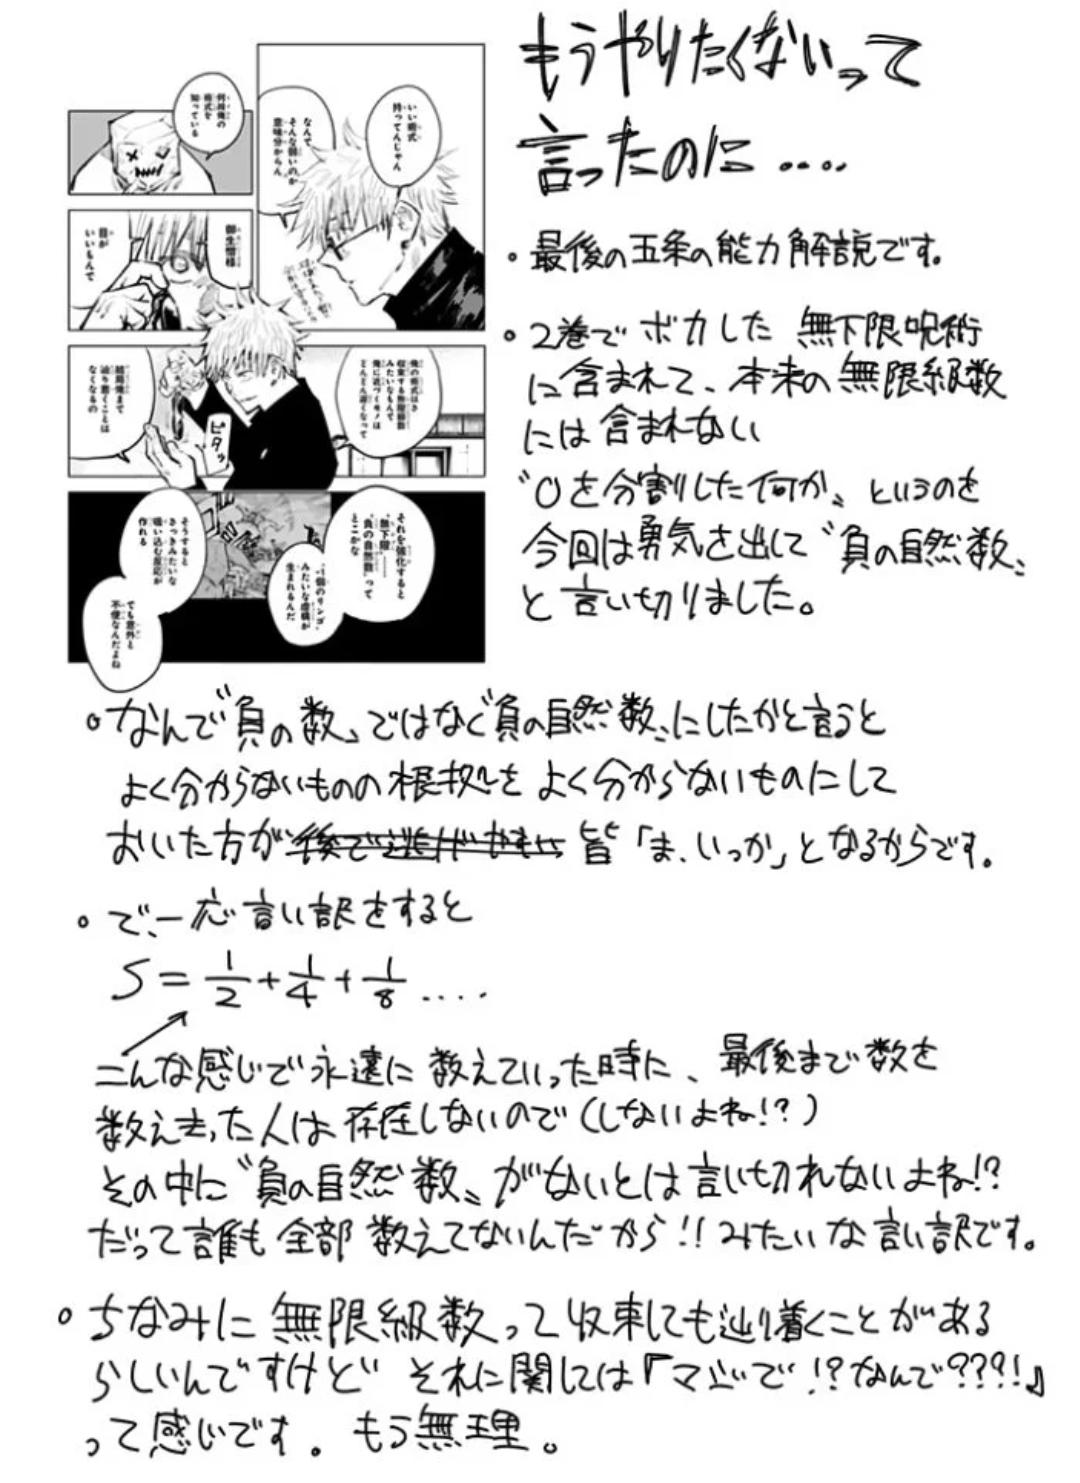 もうやりたくないって
言ったのに....
何故俺の
術式を
知っている
いい術式
持ってんじゃん
なんで
そんな弱いのか
意味分からん
御生憎様
目が
いいもんで
俺の術式はさ
収束する無限級数
みたいなもんで
俺に近づくモノは
どんどん遅くなって
結局俺まで
辿り着くことは
なくなるの
ピタッ
それを強化すると
"無下限"……
"負の自然数"って
とこかな
"-1個のリンゴ"
みたいな虚構が
生まれるんだ
そうすると
さっきみたいな
吸い込む反応が
作れる
でも意外と
不便なんだよね
。最後の五条の能力解説です。
。2巻でボカした 無下限呪術
に含まれて、本来の無限級数
には含まれない
〝0を分割した何か〟というのを
今回は勇気を出して〝負の自然数〟
と言い切りました。
。なんで〝負の数〟ではなく〝負の自然数〟にしたかと言うと
よく分からないものの根拠をよく分からないものにして
おいた方が後で逃げやすい皆「ま、いっか」となるからです。
。で、一応言い訳をすると
S=1/2+1/4+1/8....
こんな感じで永遠に数えていった時に、最後まで数を
数えきった人は存在しないので(しないよね!?)
その中に〝負の自然数〟がないとは言い切れないよね!?
だって誰も全部数えてないんだから!!みたいな言い訳です。
。ちなみに無限級数って収束しても辿り着くことがある
らしいんですけど それに関しては『マジで!?なんで???!』
って感じです。もう無理。